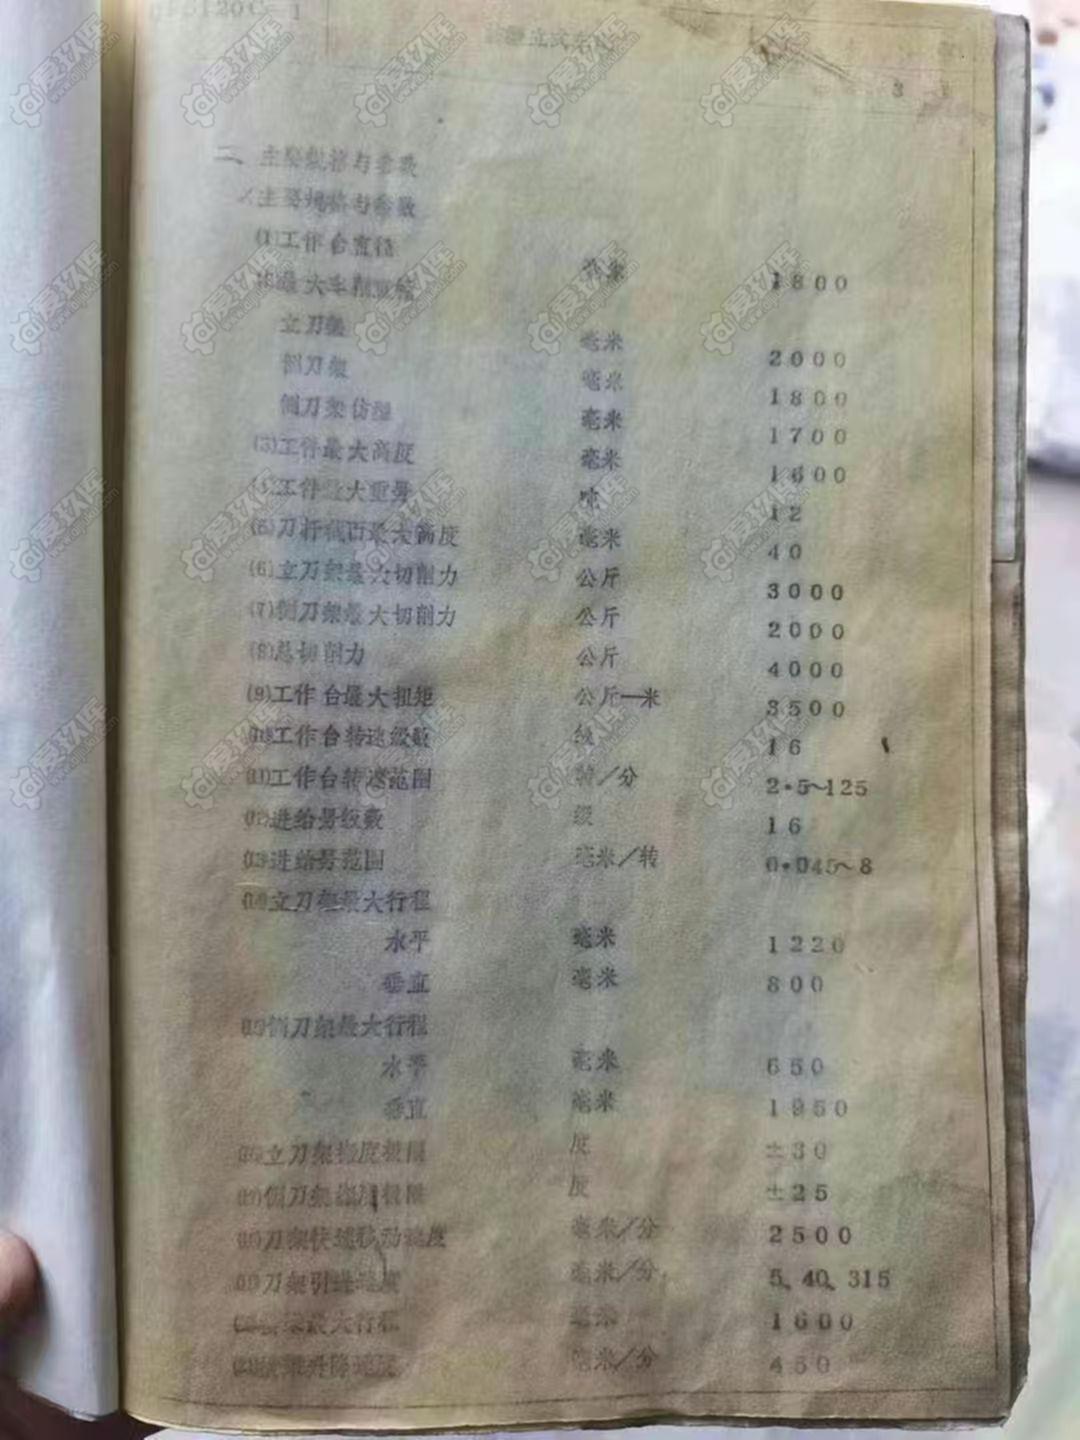 120C-1
立式车
3
二、主要规格与参数
主要规格与参数
(1)工作台直径 毫米 1800
最大车削直径
立刀架 毫米 2000
侧刀架 毫米 1800
侧刀架仿型 毫米 1700
(3)工件最大高度 毫米 1600
工件最大重量 吨 12
(5)刀杆截面最大高度 毫米 40
(6)立刀架最大切削力 公斤 3000
(7)侧刀架最大切削力 公斤 2000
(8)总切削力 公斤 4000
(9)工作台最大扭矩 公斤—米 3500
(10)工作台转速级数 级 16
(11)工作台转速范围 转/分 2·5~125
(12)进给量级数 级 16
(13)进给量范围 毫米/转 0·045~8
(14)立刀架最大行程
水平 毫米 1220
垂直 毫米 800
(15)侧刀架最大行程
水平 毫米 650
垂直 毫米 1950
(16)立刀架 度 ±30
(17)侧刀架 度 ±25
(18)刀架快速移动速度 毫米/分 2500
(19)刀架引进速度 毫米/分 5、40、315
最大行程 毫米 1600
升降速度 毫米/分 450
爱玖库